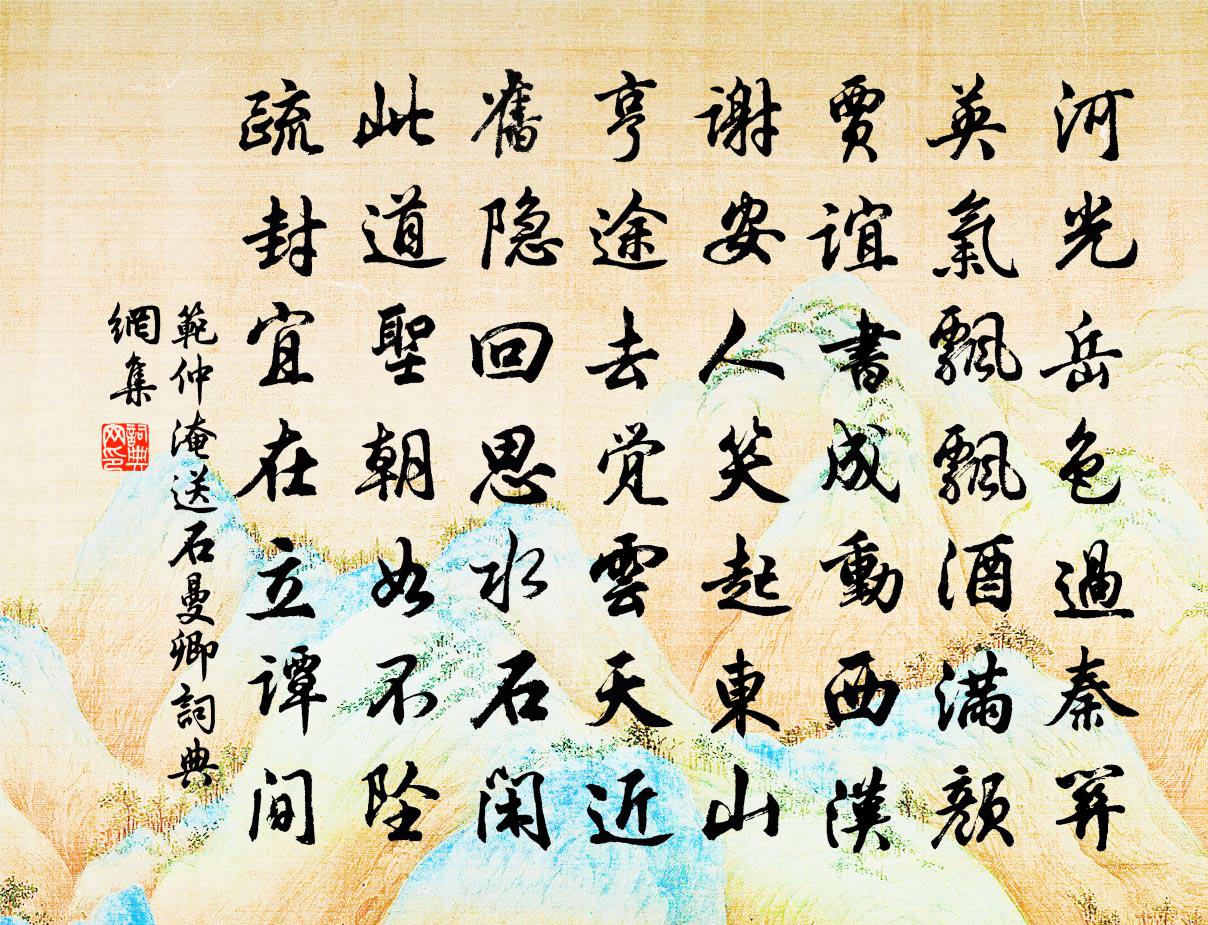 河光岳色過秦關
英氣飄飄酒滿顔
賈誼書成動西漢
謝安人笑起東山
亨途去觉雲天近
舊隐回思水石闲
此道聖朝如不坠
疏封宜在立譚间
範仲淹送石曼卿詞典
網集
詞典
网印